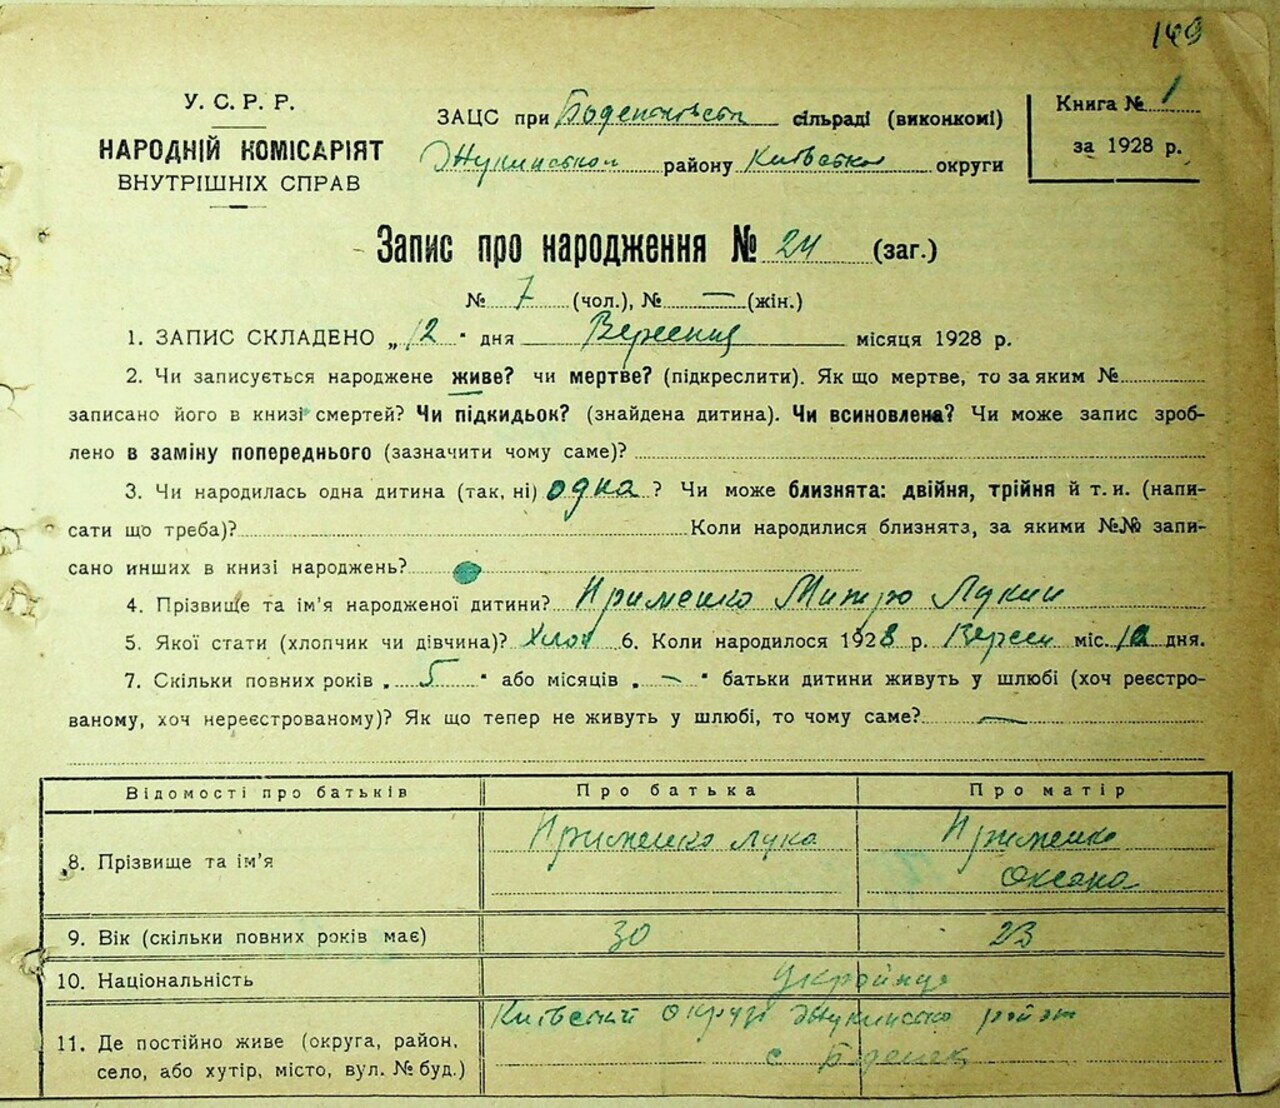 149
У. С. Р. Р.
НАРОДНІЙ КОМІСАРІЯТ
ВНУТРІШНІХ СПРАВ
ЗАЦС при сільраді (виконкомі)
Жукинської району Київської округи
Книга № 1
за 1928 р.
Запис про народження № 24 (заг.)
№ 7 (чол.), № — (жін.)
1. ЗАПИС СКЛАДЕНО „12" дня Вересня місяця 1928 р.
2. Чи записується народжене живе? чи мертве? (підкреслити). Як що мертве, то за яким №
записано його в книзі смертей? Чи підкидьок? (знайдена дитина). Чи всиновлена? Чи може запис зроб-
лено в заміну попереднього (зазначити чому саме)?
3. Чи народилась одна дитина (так, ні) одна ? Чи може близнята: двійня, трійня й т. и. (напи-
сати що треба)? Коли народилися близнятз, за якими №№ запи-
сано инших в книзі народжень?
4. Прізвище та ім'я народженої дитини? Применко Митро Лукич
5. Якої стати (хлопчик чи дівчина)? Хлоп 6. Коли народилося 1928 р. Вересн міс. дня.
7. Скільки повних років „ 5 " або місяців „ — " батьки дитини живуть у шлюбі (хоч реєстро-
ваному, хоч нереєстрованому)? Як що тепер не живуть у шлюбі, то чому саме? —
Відомості про батьків Про батька Про матір
8. Прізвище та ім'я Применко Лука Применко
Оксана
9. Вік (скільки повних років має) 30 23
10. Національність Українці
11. Де постійно живе (округа, район, село, або хутір, місто, вул. № буд.) Київський округі Жукинсько район
с